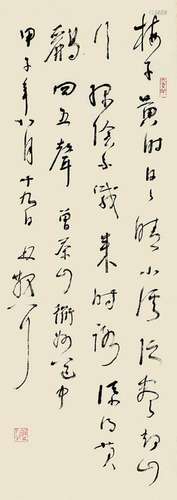 梅子黄时日日晴小溪泛尽却山
行绿阴不减来时路添得黄
鹂四五声 曾茶山衢州道中
甲子年月十九日